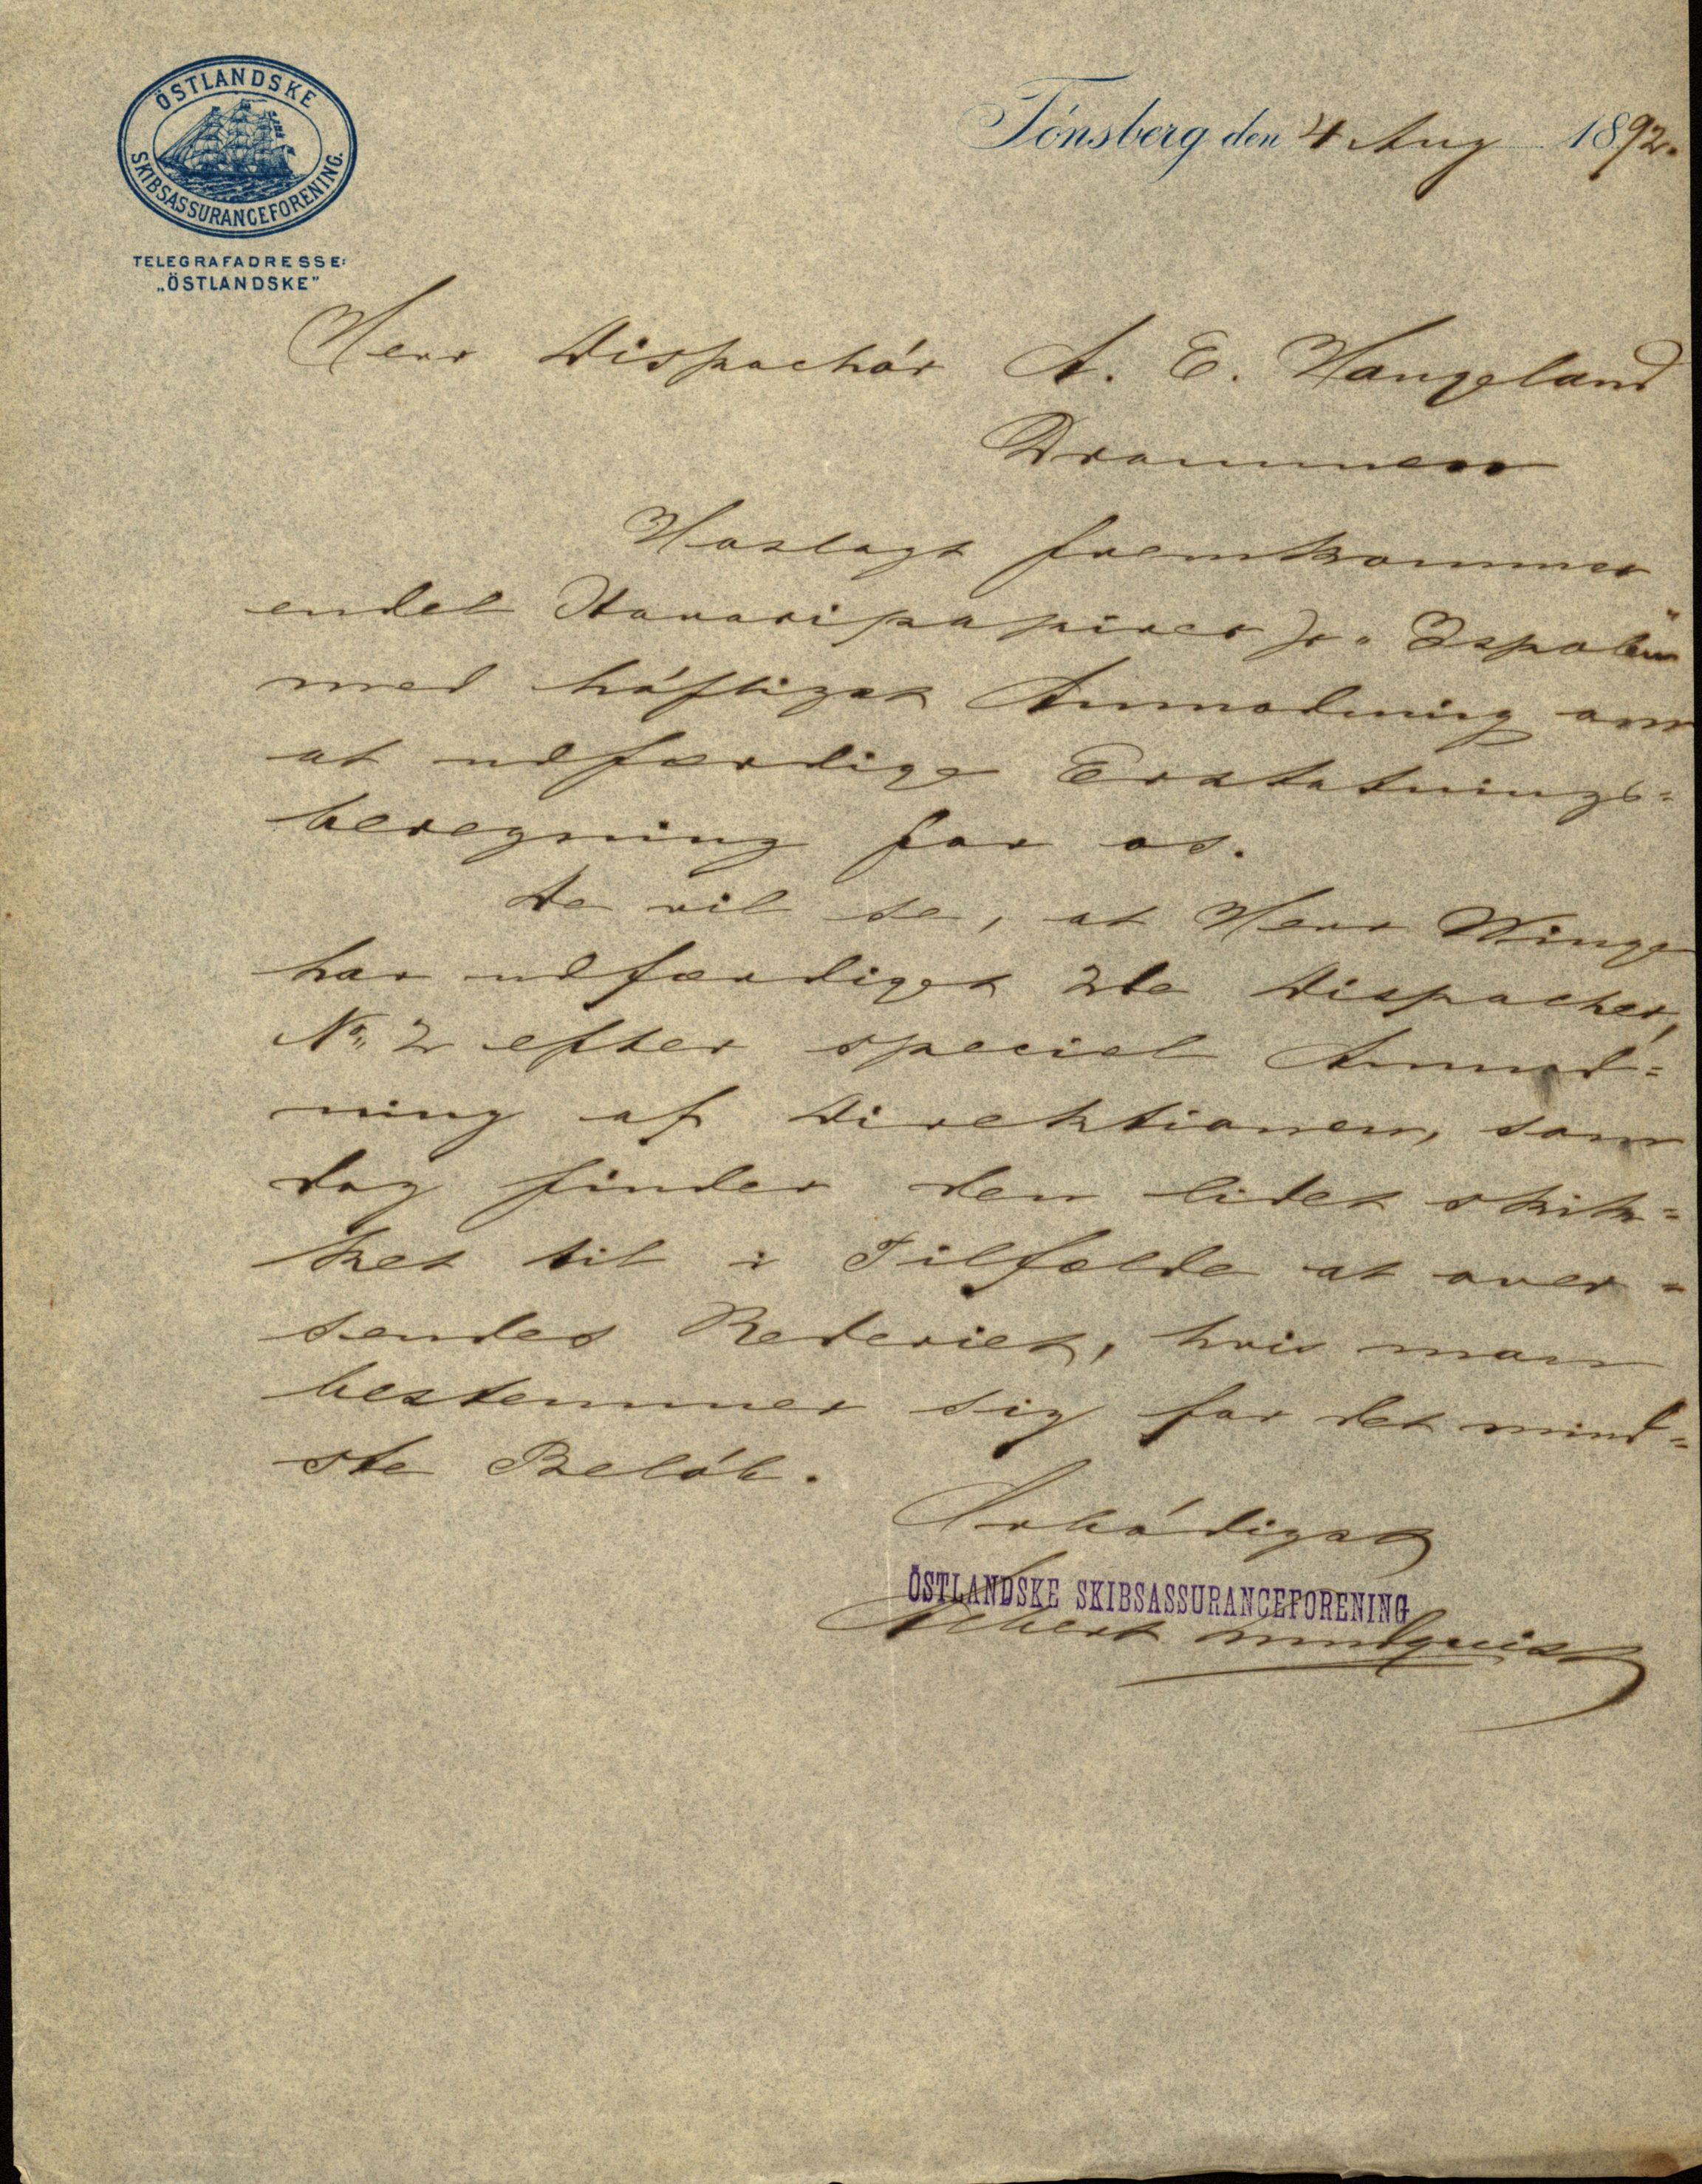 ÖSTLANDSKE
SKIBSASSURANCEFORENING.
TELEGRAFADRESSE:
„ÖSTLANDSKE"
Tónsberg den 4 Aug 1892.
Herr Dispachór A. E. Haugeland
Drammen
Hoslagt fremkommer
endel Havaripapirer pr "Espolin"
med hófligst Anmodning om
at udfærdige Erstatnings=
beregning for os.
De vil se, at Herr Winge
har udfærdiget 2de Dispacher,
No 2 efter speciel Anmod=
ning af Direktionen, som
dog finder den lidet skik=
ket til i Tilfælde at over=
sendes Rederiet, hvis man
bestemmer sig for det mind=
ste Belób.
Årbódigst
ÖSTLANDSKE SKIBSASSURANCEFORENING
Albert Lundquist